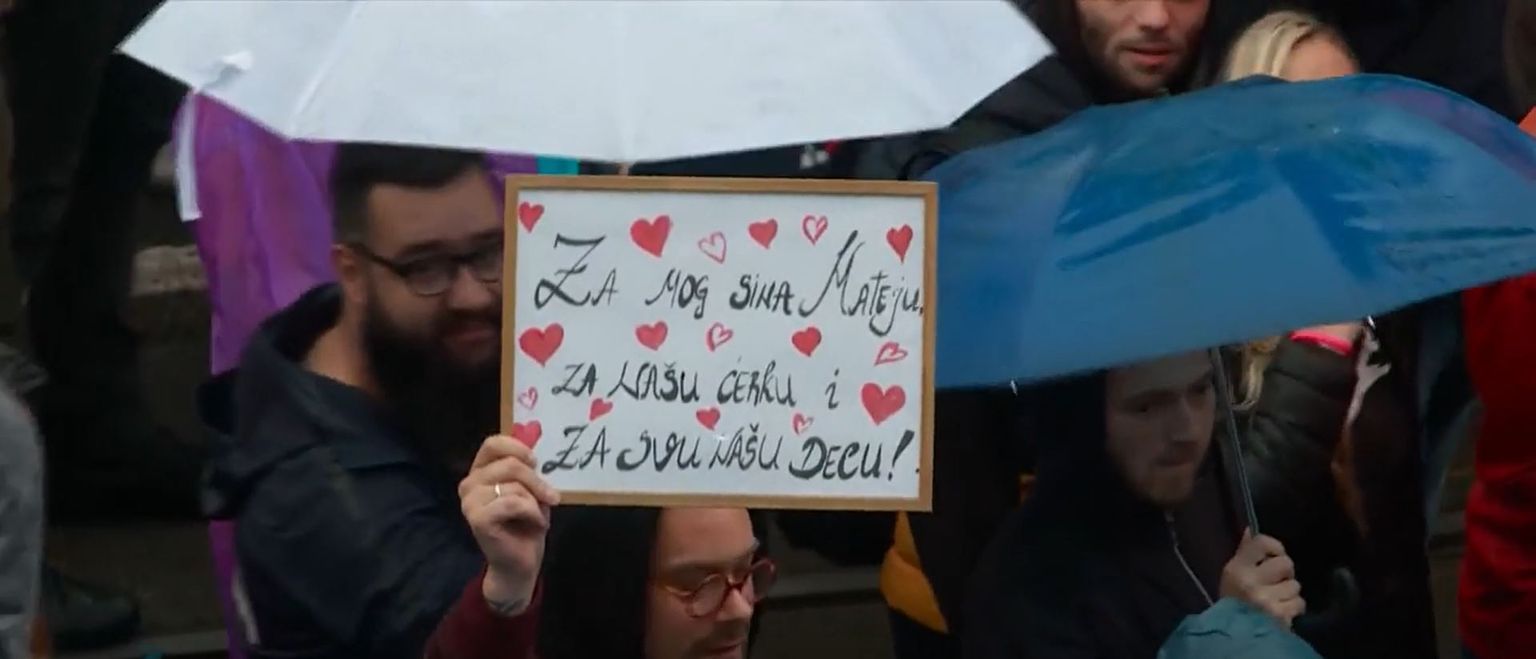 ZA MOG SINA MATEJU,
ZA NAŠU ĆERKU i
ZA SVU NAŠU DECU!